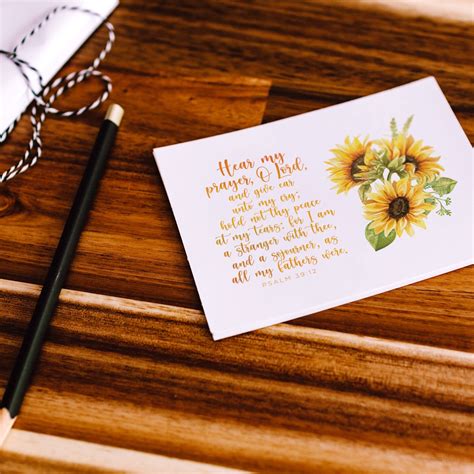 Hear my
prayer, O Lord,
and give ear
unto my cry;
hold not thy peace
at my tears: for I am
a stranger with thee,
and a sojourner, as
all my fathers were.
PSALM 39:12